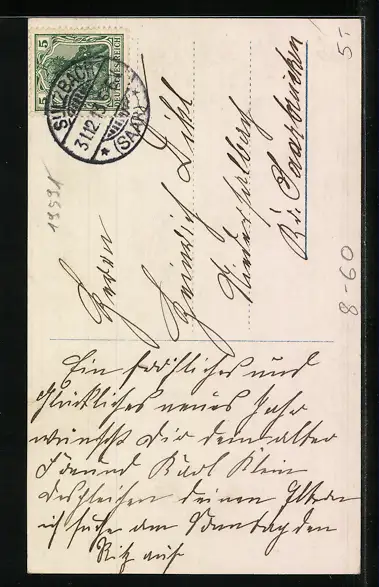 5
DEUTSCHES REICH
SULZBACH
31.12.
(SAAR)
5.-
19591
8-60
Herrn
Heinrich Dihl
B. Saarbrücken
Ein fröhliches und
Glückliches neues Jahr
wünscht Dir dein alter
Freund Karl Klein
desgleichen deinen Eltern
ich suche am Sonntag den
auf